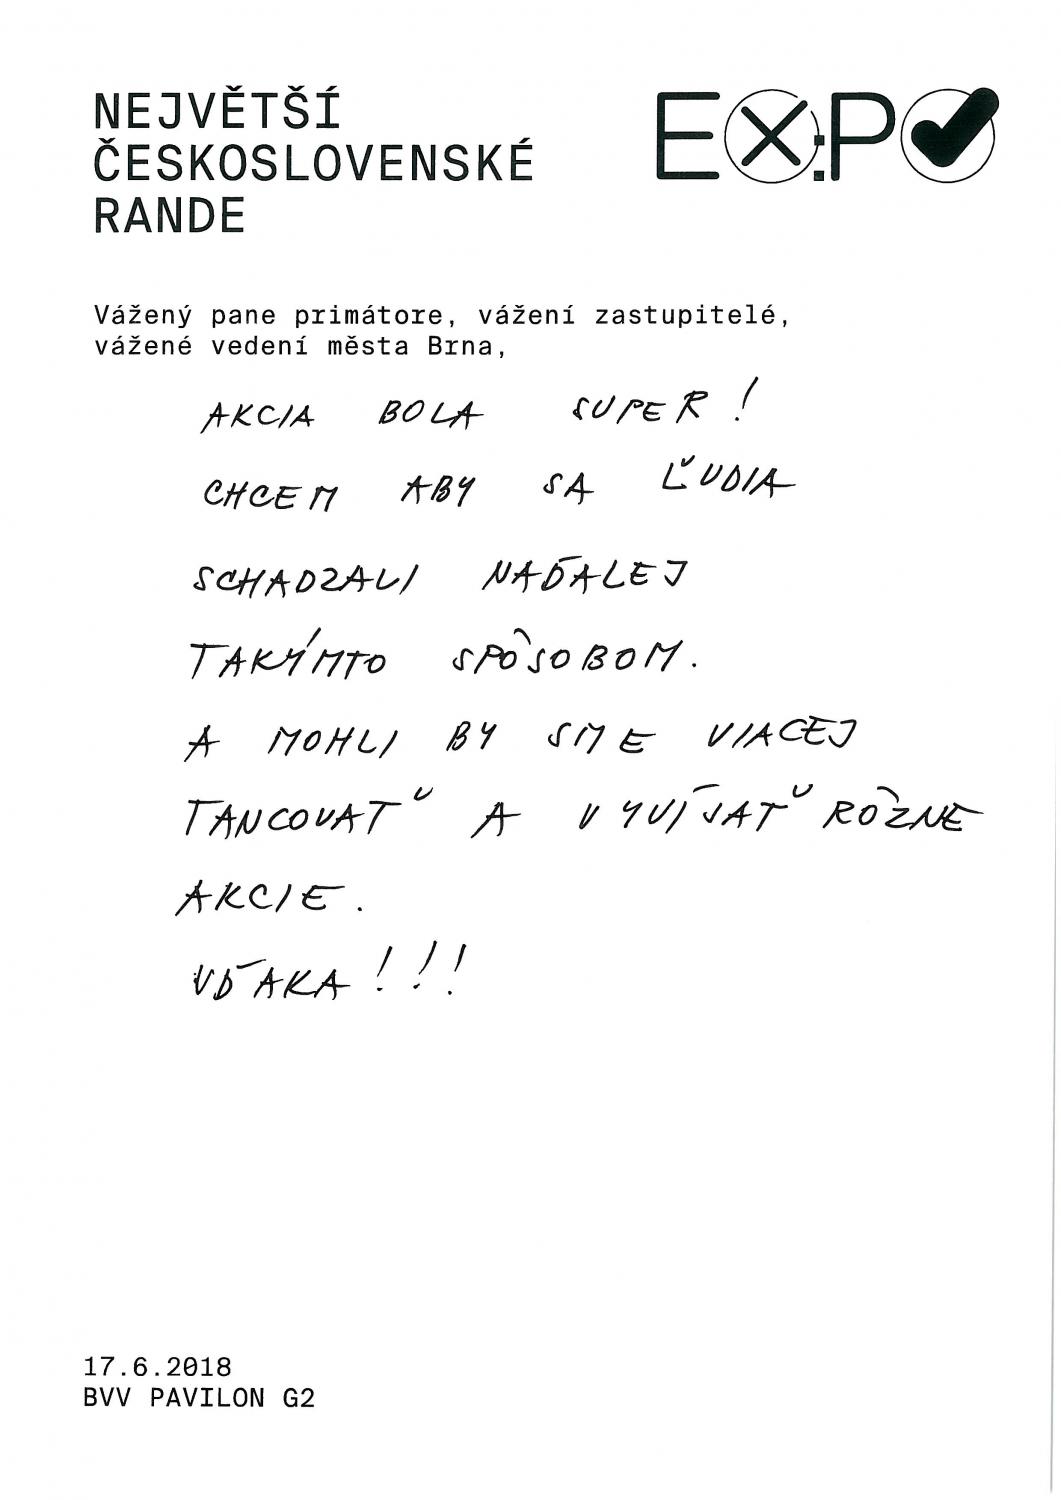 NEJVĚTŠÍ
ČESKOSLOVENSKÉ
RANDE
EX:PO
Vážený pane primátore, vážení zastupitelé,
vážené vedení města Brna,
AKCIA BOLA SUPER!
CHCEM ABY SA ĽUDIA
SCHADZALI NAĎALEJ
TAKÝMTO SPÔSOBOM.
A MOHLI BY SME VIACEJ
TANCOVAŤ A VYVÍJAŤ RÔZNE
AKCIE.
VĎAKA!!!
17.6.2018
BVV PAVILON G2